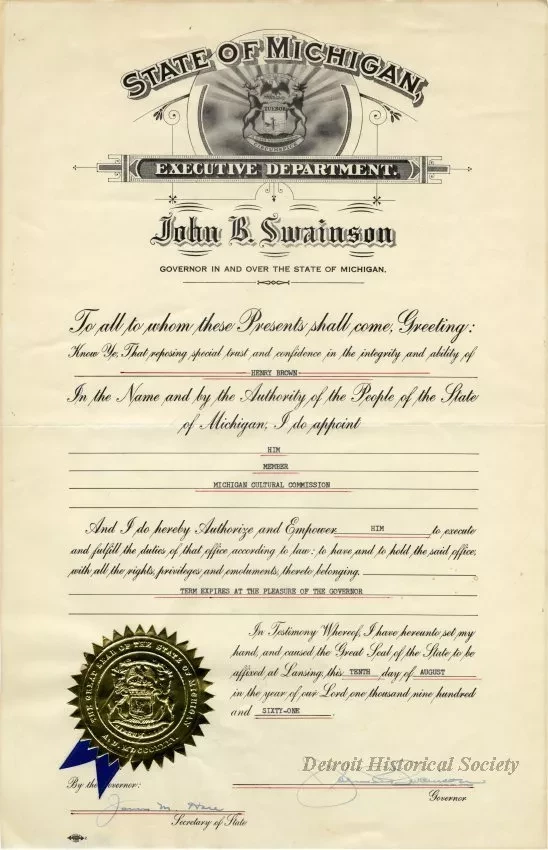 STATE OF MICHIGAN,
TUEBOR
CIRCUMSPICE
EXECUTIVE DEPARTMENT.
John B. Swainson
GOVERNOR IN AND OVER THE STATE OF MICHIGAN.
To all to whom these Presents shall come, Greeting:
Know Ye, That reposing special trust and confidence in the integrity and ability of
HENRY BROWN
In the Name and by the Authority of the People of the State
of Michigan, I do appoint
HIM
MEMBER
MICHIGAN CULTURAL COMMISSION
And I do hereby Authorize and Empower HIM to execute
and fulfill the duties of that office according to law: to have and to hold the said office,
with all the rights, privileges and emoluments, thereto belonging.
TERM EXPIRES AT THE PLEASURE OF THE GOVERNOR
In Testimony Whereof, I have hereunto set my
hand, and caused the Great Seal of the State to be
affixed at Lansing, this TENTH day of AUGUST
in the year of our Lord one thousand nine hundred
and SIXTY-ONE
THE GREAT SEAL OF THE STATE OF MICHIGAN
Detroit Historical Society
By the Governor:
John B. Swainson
Governor
James M. Hare
Secretary of State